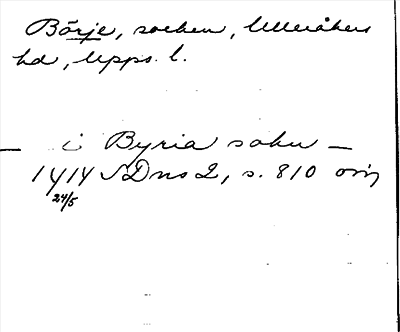 Börje, socken, Ulleråkers
hd, Upps. l.
– i Byria sokn –
1414 SDns 2, s. 810 orig
24/5